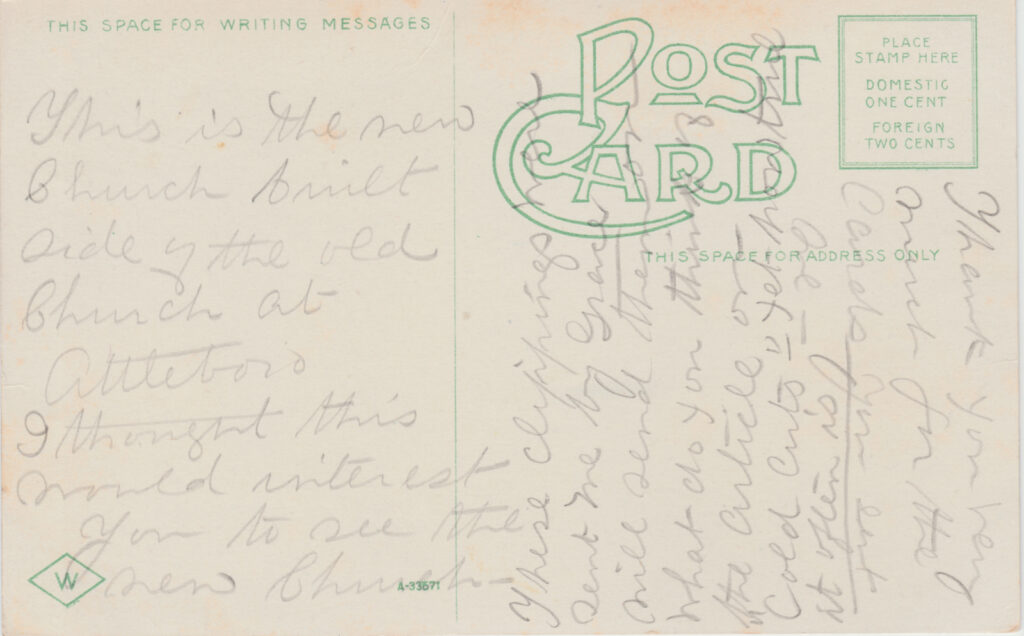 THIS SPACE FOR WRITING MESSAGES
This is the new
Church built
side of the old
Church at
Attleboro
I thought this
would interest
You to see the
new Church-
W
A-33671
POST
CARD
PLACE
STAMP HERE
DOMESTIC
ONE CENT
FOREIGN
TWO CENTS
THIS SPACE FOR ADDRESS ONLY
These clippings were
sent me by Grace
will send them on
what do you think of
the article on
Cold Cuts " yet
it often is
Cards you sent
much for the
Thank you very